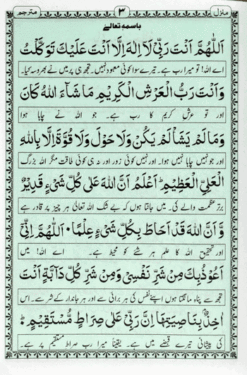 منزل ۳ مترجم
باسمہ تعالیٰ
اَللّٰهُمَّ اَنْتَ رَبِّیْ لَاۤ اِلٰهَ اِلَّاۤ اَنْتَ عَلَيْكَ تَوَكَّلْتُ
اے اللہ! تو میرا رب ہے۔ تیرے سوا کوئی معبود نہیں۔ تجھ ہی پر میں نے بھروسہ کیا۔
وَاَنْتَ رَبُّ الْعَرْشِ الْكَرِيْمِ مَا شَآءَ اللّٰهُ كَانَ
اور تو عرش کریم کا رب ہے۔ جو اللہ نے چاہا ہوا
وَمَا لَمْ يَشَأْ لَمْ يَكُنْ وَلَا حَوْلَ وَلَا قُوَّةَ اِلَّا بِاللّٰهِ
اور جو نہیں چاہا نہیں ہوا۔ اور نہیں کوئی زور اور نہ ہی کوئی طاقت مگر اللہ بزرگ
الْعَلِيِّ الْعَظِيْمِ اَعْلَمُ اَنَّ اللّٰهَ عَلٰى كُلِّ شَیْءٍ قَدِيْرٌ
برتر عظمت والے کی۔ میں جانتا ہوں کہ بے شک اللہ تعالیٰ ہر چیز پر قادر ہے
وَّ اَنَّ اللّٰهَ قَدْ اَحَاطَ بِكُلِّ شَیْءٍ عِلْمًا ۔ اَللّٰهُمَّ اِنِّیْ
اور تحقیق اللہ کا علم ہر شے کو محیط ہے۔ اے اللہ! میں
اَعُوْذُ بِكَ مِنْ شَرِّ نَفْسِیْ وَمِنْ شَرِّ كُلِّ دَآبَّةٍ اَنْتَ
تجھ سے پناہ مانگتا ہوں اپنے نفس کی ہر برائی سے اور ہر جاندار کے شر سے۔ اس
اٰخِذٌۢ بِنَاصِيَتِهَا اِنَّ رَبِّیْ عَلٰى صِرَاطٍ مُّسْتَقِيْمٍ
کی پیشانی تیرے قبضے میں ہے۔ یقیناً میرا رب صراط مستقیم پر ہے